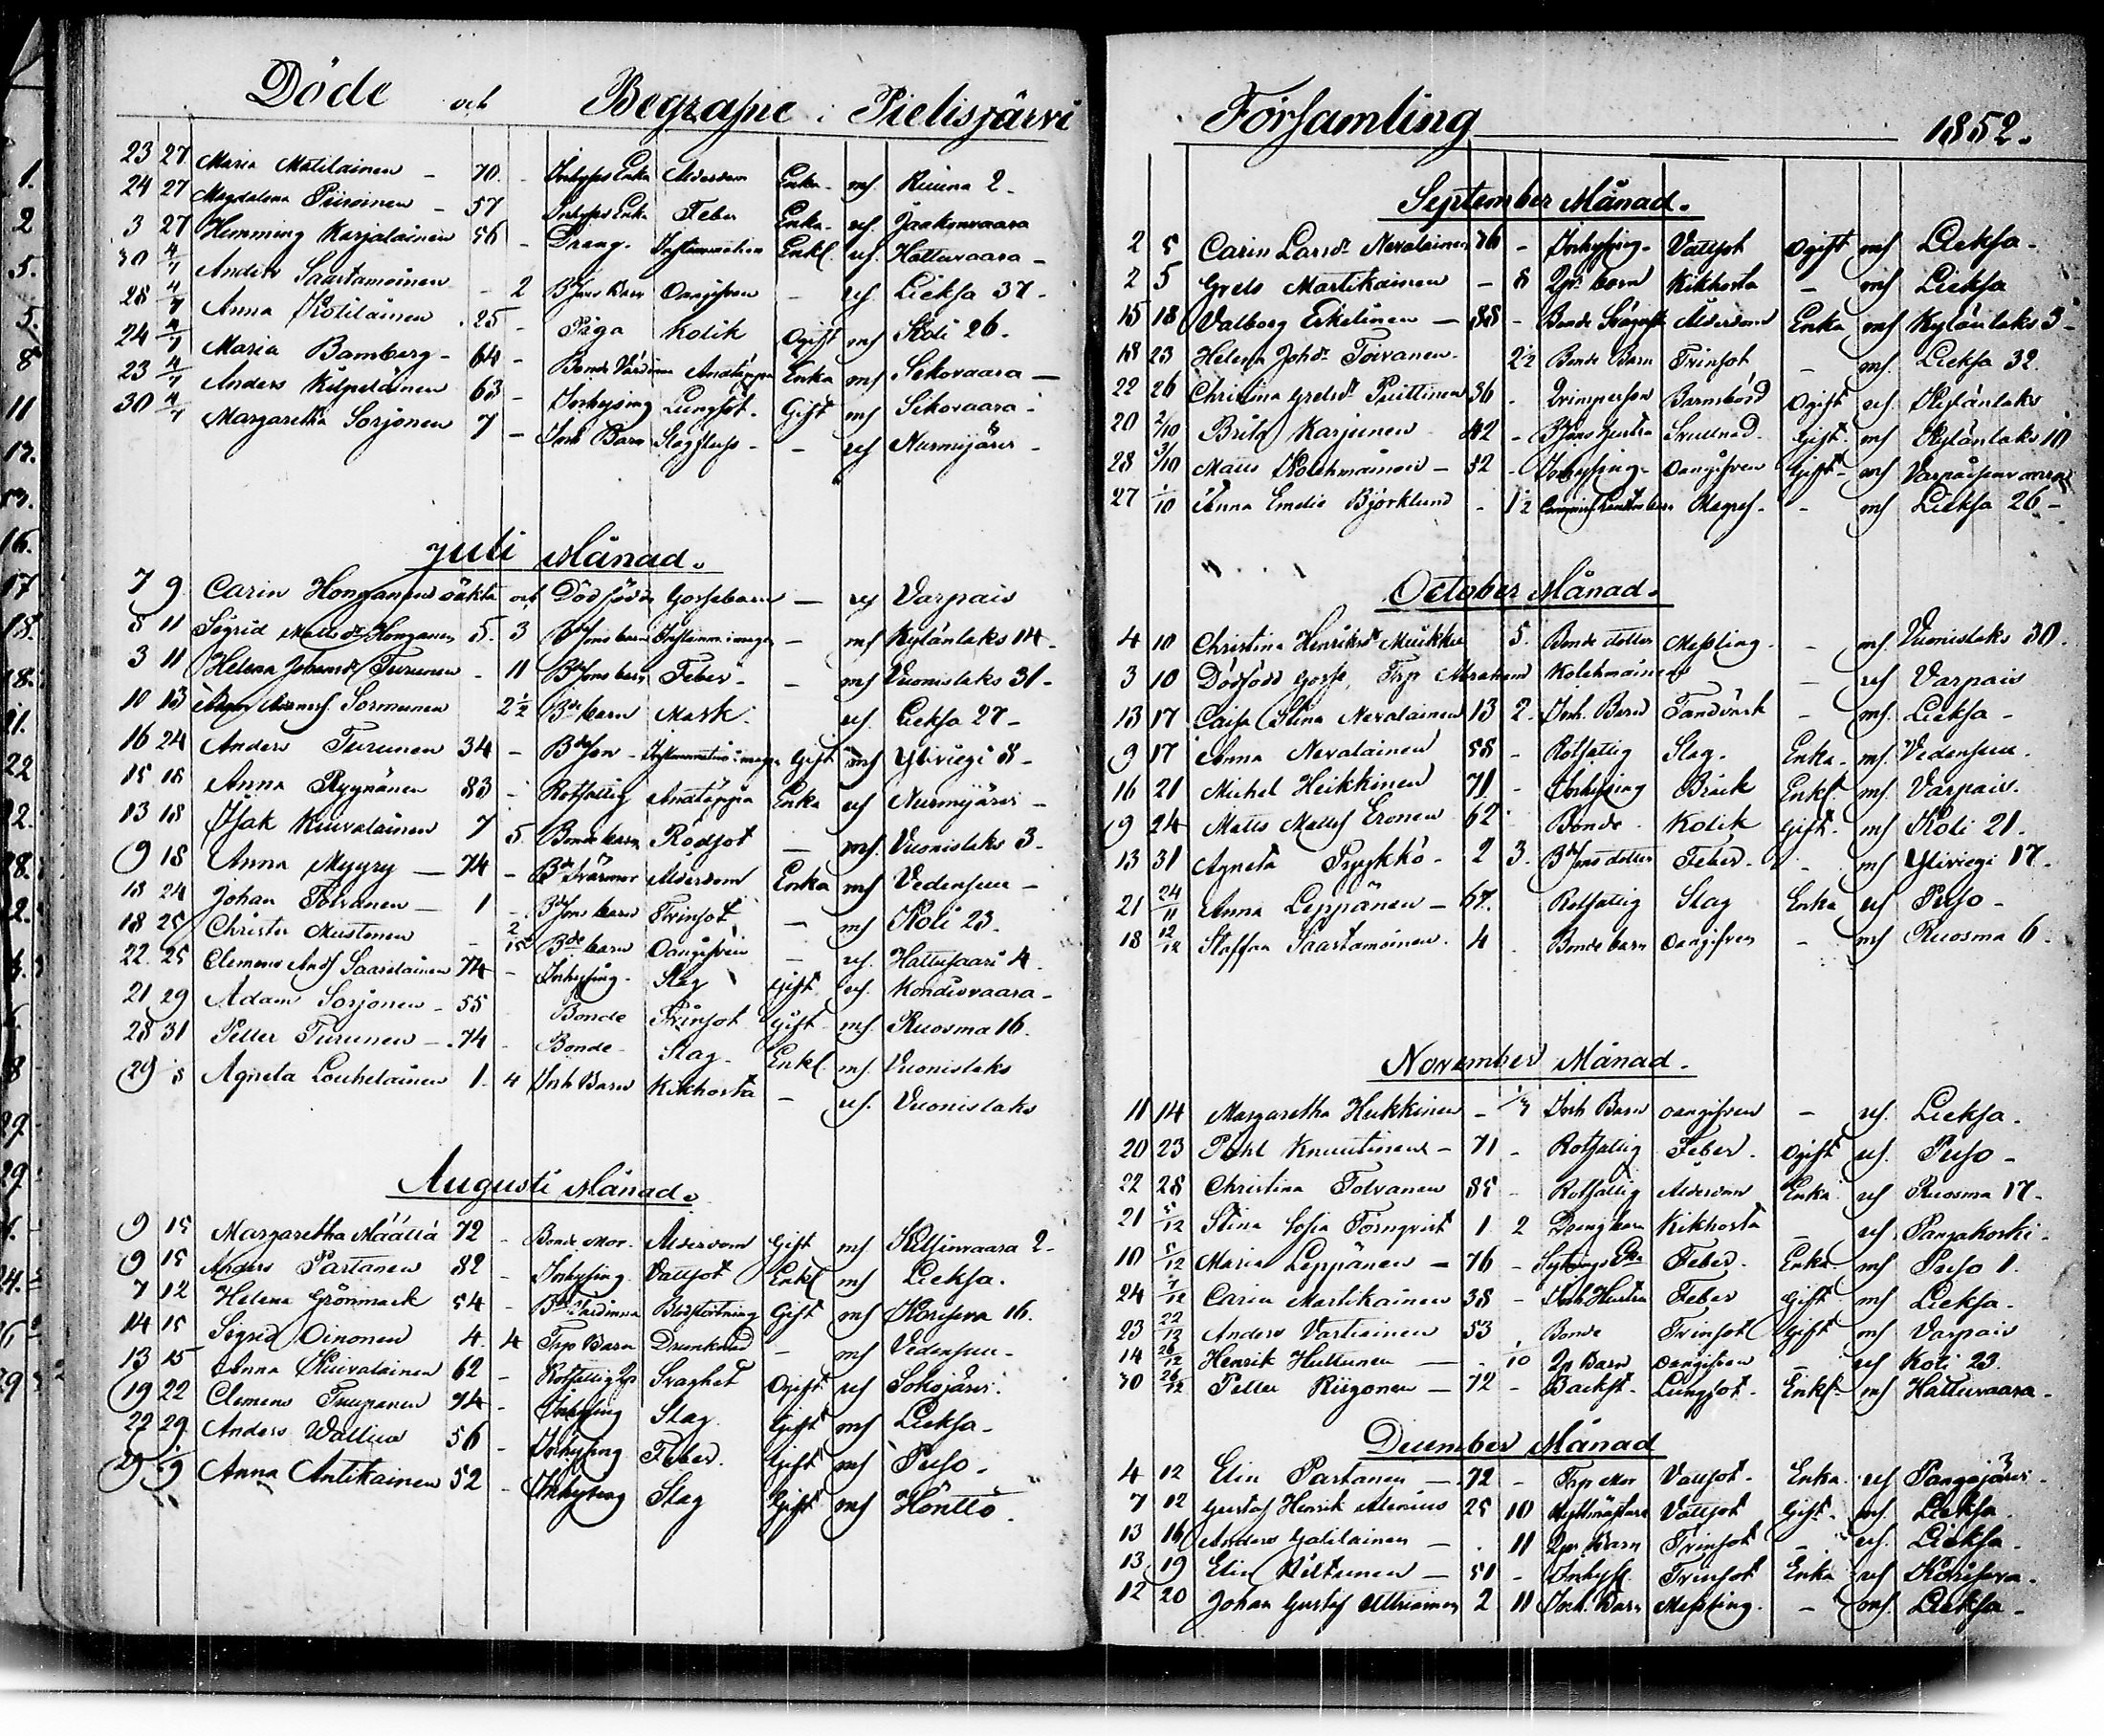 Döde och Begrafne i Pielisjärvi
23 27 Maria Matilainen - 70 - Inhyses Enka Ålderdom Enka - mf Ruuna 2 -
24 27 Magdalena Piiroinen - 57 Inhyses Enka Feber Enka - uf. Jaakonvaara
3 27 Hemming Karjalainen 56 - Dräng - Inflammation Enkl. uf. Hattuvaara -
30 4/7 Anders Saastamoinen - 2 Barn Oangifven - uf Lieksa 37 -
28 4/7 Anna Kotilainen 25 - Piga Kolik Ogift mf Koli 26 -
24 4/7 Maria Bamberg - 64 - Bonde Värdinna Andtäppa Enka mf Sikovaara -
23 4/7 Anders Kilpeläinen 63 - Inhysing Lungsot - Gift mf Sikovaara -
30 4/7 Margaretha Sorjonen 7 - Inh Barn Slagfluss - - uf Nurmijärvi -
Juli Månad.
7 9 Carin Honganens oäkta och Dödfödde Gossebarn - uf Varpais
8 11 Sigrid Matts dr Honganen 5. 3 barn - mf Kylänlaks 14 -
3 11 Helena Turunen - 11 barn Feber - - mf Vuonislaks 31 -
10 13 Sormunen 2 1/2 Bde barn Mask. uf. Lieksa 27 -
16 24 Anders Turunen 34 - BdeSon - Inflammation i magen Gift mf Yliviegi 8 -
15 18 Anna Ryynänen 83 - Rotfattig Andtäppa Enka uf Nurmijärvi -
13 18 Isak Kiuvalainen 7 5 Bonde barn Rödsot - mf. Vuonislaks 3 -
9 18 Anna Myyry - 74 - Bde Svärmor Ålderdom Enka mf Vedensuu -
18 24 Johan Toivanen - 1 - barn Tvinsot - mf Koli 23 -
18 25 Christer Mustonen - 2/15 Bde barn Oangifven - uf. Hattusaari 4
22 25 Clemens Saarelainen 74 - Inhysing - Slag Gift uf. Kondisvaara -
21 29 Adam Sorjonen - 55 Bonde Tvinsot Gift mf. Ruosma 16.
28 31 Petter Turunen - 74 - Bonde - Slag - Enkl. mf. Vuonislaks
29 8 Agneta Louhelainen 1. 4 Inh Barn Kikhosta - uf. Vuonislaks
Augusti Månad.
9 15 Margaretha Määttä 72 - Bonde Mor - Ålderdom Gift mf 2 -
9 15 Anders Partanen 82 - Inhysing Vattsot Enkl mf Lieksa.
7 12 Helena Grönmark 54 - Värdinna Blodstörtning Gift mf 16.
14 15 Sigrid Oinonen 4. 4 Trp Barn Drunknad - mf Vedensuu -
13 15 Anna Kiuvalainen 62 - Rotfattig Svaghet Ogift uf Sokojärvi.
19 22 Clemens Timpanen 74 - Inhysing Slag Gift mf Lieksa -
27 29 Anders Wallius 56 - Inhysing Feber. Gift mf Puso -
29 Anna Antikainen 52 - Inhysing Slag Gift mf Höntlö.
Församling 1852.
September Månad.
2 5 Carin Larsdr Nevalainen 76 - Inhysing - Vattsot Ogift mf Lieksa -
2 5 Greta Martikainen - 8 barn Kikhosta - mf Lieksa
15 18 Valborg Eskelinen - 88 - Bonde Ålderdom Enka mf Kylänlaks 3 -
18 23 Helena Joh dr Toivanen - 2 1/2 Bonde Barn Tvinsot - mf. Lieksa 32.
22 26 Christina Puittinen 36 - Qvinsperson Barnsbörd Ogift uf. Kylänlaks
20 2/10 Brita Karjunen 42 - Hustru Svullnad. Gift - mf Kylänlaks 10
28 3/10 Matts Kolehmainen - 52 - Inhysing - Oangifven Gift - mf
27 1/10 Anna Emelie Björklund - 1 1/2 - mf Lieksa 26 -
October Månad.
4 10 Christina Henriksdr Muikku 5. Bonde dotter Messling - - mf. Vuonislaks 30.
3 10 Dödfödd gosse, Trp Abraham Kolehmainens - uf Varpais
13 17 Caisa Stina Nevalainen 13 2. Inh. Barn Tandvärk - mf. Lieksa -
9 17 Anna Nevalainen 58 - Rotfattig Slag - Enka - mf. Vedensuu.
16 21 Michel Heikkinen 71 - Inhysing Bråck Enkl. mf. Varpais.
9 24 Matts Eronen 62 Bonde - Kolik Gift - mf Koli 21.
13 31 Agneta Pyykkö - 2 3. dotter Feber - - mf Yliviegi 17 -
21 24/11 Anna Leppänen - 67. Rotfattig Slag Enka uf Puso -
18 12/12 Staffan Saastamoinen. 4 Bonde barn Oangifven - mf Ruosma 6.
November Månad.
11 14 Margaretha Heikkinen - Inh Barn Oangifven - uf. Lieksa.
20 23 Påhl Knuutinen - 71 - Rotfattig Feber - Ogift uf. Puso -
22 28 Christina Tolvanen 85 - Rotfattig Ålderdom Enka uf Ruosma 17 -
21 5/12 Stina Sofia Törnqvist 1. 2 Dräng barn Kikhosta - uf Pangakoski -
10 5/12 Maria Leppänen - 76 - Feber - Enka mf Puso 1.
24 Carin Martikainen 38 - Inh Hustru Feber Gift mf Lieksa -
23 22/12 Anders Vartiainen 53 Bonde Tvinsot Gift mf Varpais
14 26/12 Henrik Huttunen - 10 Barn Oangifven - uf Koli 23.
30 26/12 Petter Riigonen - 72 - Backst - Lungsot - Enkl - mf Hattuvaara -
December Månad
4 12 Elin Partanen - 72 - Trp Mor Vattsot - Enka uf Pangajärvi -
7 12 Gustaf Henrik Alenius 25 10 Vattsot Gift - mf. Lieksa.
13 16 Anders - 11 Barn Tvinsot - uf. Lieksa -
13 19 Elin Kiltunen - 51 - Inhys. Tvinsot Enka uf
12 20 Johan Gustaf 2 11 Inh. Barn Messling - - mf. Lieksa -